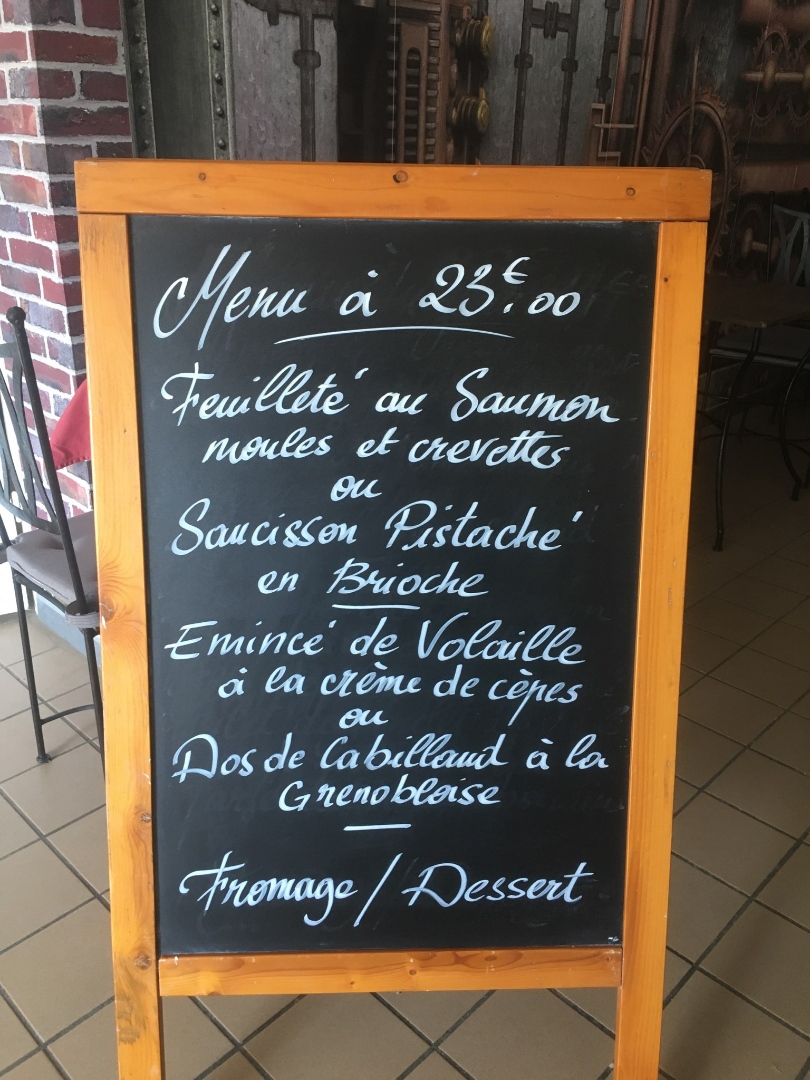 Menu à 23€.00
Feuilleté au Saumon
moules et crevettes
ou
Saucisson Pistaché
en Brioche
Emincé de Volaille
à la crème de cèpes
ou
Dos de Cabillaud à la
Grenobloise
Fromage / Dessert